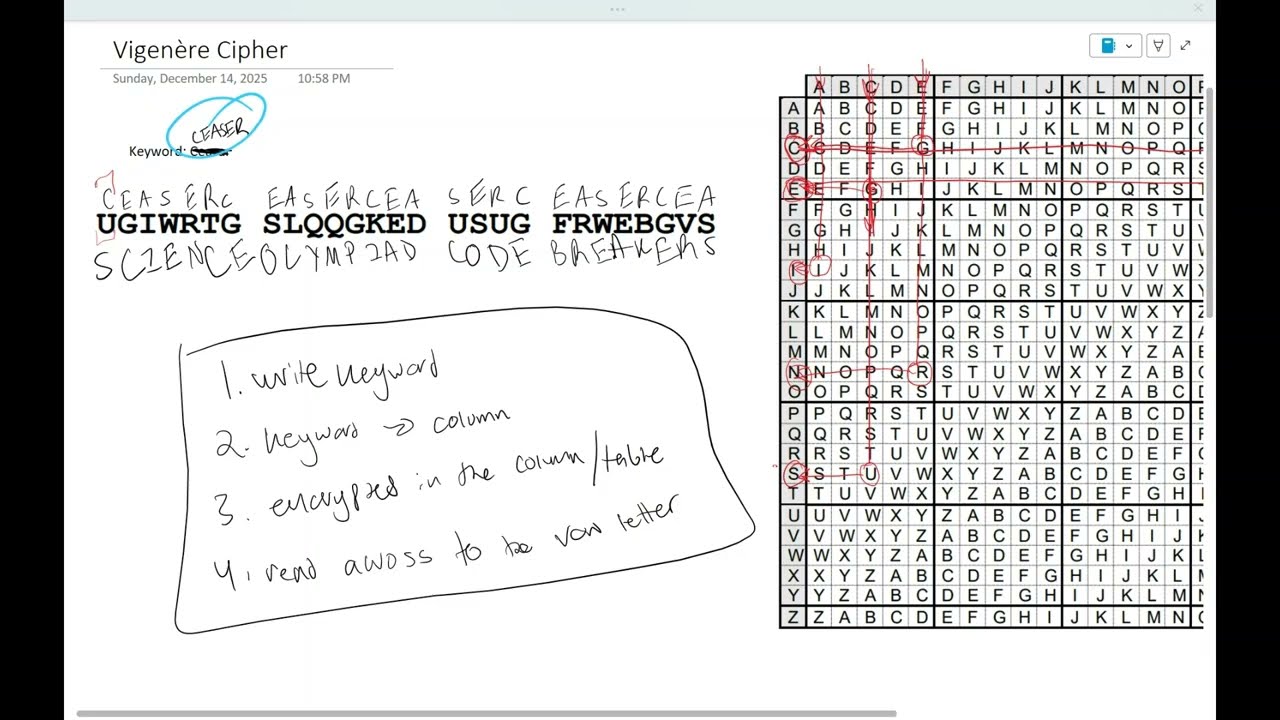 Vigenère Cipher
Sunday, December 14, 2025 10:58 PM
CEASER
Keyword:
CEASERC EASERCEA SERC EASERCEA
UGIWRTG SLQQGKED USUG FRWEBGVS
SCIENCE OLYMPIAD CODE BREAKERS
1. write keyword
2. keyword → column
3. encrypted in the column/table
4. read across to be row letter
A B C D E F G H I J K L M N O P
A A B C D E F G H I J K L M N O P
B B C D E F G H I J K L M N O P Q
C C D E F G H I J K L M N O P Q R
D D E F G H I J K L M N O P Q R S
E E F G H I J K L M N O P Q R S T
F F G H I J K L M N O P Q R S T U
G G H I J K L M N O P Q R S T U V
H H I J K L M N O P Q R S T U V W
I I J K L M N O P Q R S T U V W X
J J K L M N O P Q R S T U V W X Y
K K L M N O P Q R S T U V W X Y Z
L L M N O P Q R S T U V W X Y Z A
M M N O P Q R S T U V W X Y Z A B
N N O P Q R S T U V W X Y Z A B C
O O P Q R S T U V W X Y Z A B C D
P P Q R S T U V W X Y Z A B C D E
Q Q R S T U V W X Y Z A B C D E F
R R S T U V W X Y Z A B C D E F G
S S T U V W X Y Z A B C D E F G H
T T U V W X Y Z A B C D E F G H I
U U V W X Y Z A B C D E F G H I J
V V W X Y Z A B C D E F G H I J K
W W X Y Z A B C D E F G H I J K L
X X Y Z A B C D E F G H I J K L M
Y Y Z A B C D E F G H I J K L M N
Z Z A B C D E F G H I J K L M N O